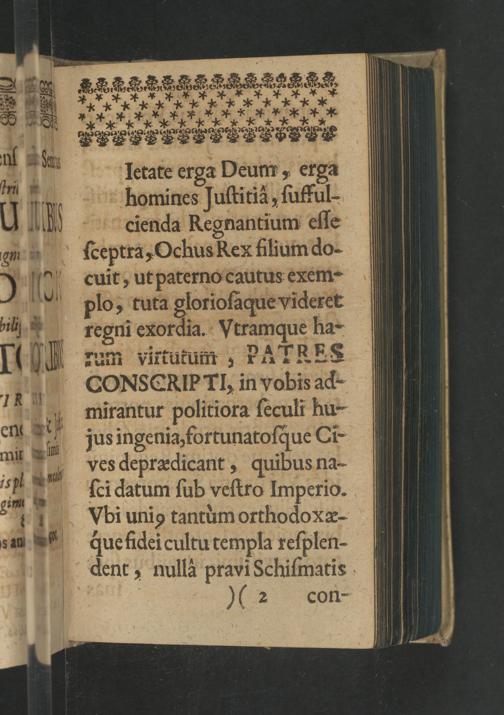 Ietate erga Deum, erga
homines Juſtitiâ, ſufful-
cienda Regnantium eſſe
ſceptra, Ochus Rex filium do-
cuit, ut paterno cautus exem-
plo, tuta glorioſaque videret
regni exordia. Vtramque ha-
rum virtutum, PATRES
CONSCRIPTI, in vobis ad-
mirantur politiora ſeculi hu-
jus ingenia, fortunatoſq́ue Ci-
ves deprædicant, quibus na-
ſci datum ſub veſtro Imperio.
Vbi uniꝰ tantùm orthodoxæ-
q́ue fidei cultu templa reſplen-
dent, nullâ pravi Schiſmatis
)( 2 con-